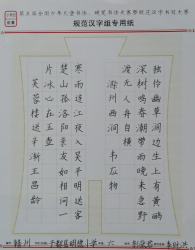 规范汉字组专用纸
独怜幽草涧边生上有黄鹂
深树鸣春潮带雨晚来急野
渡无人舟自横
滁州西涧 韦应物
寒雨连江夜入吴平明送客
楚山孤洛阳亲友如相问一
片冰心在玉壶
芙蓉楼送辛渐 王昌龄